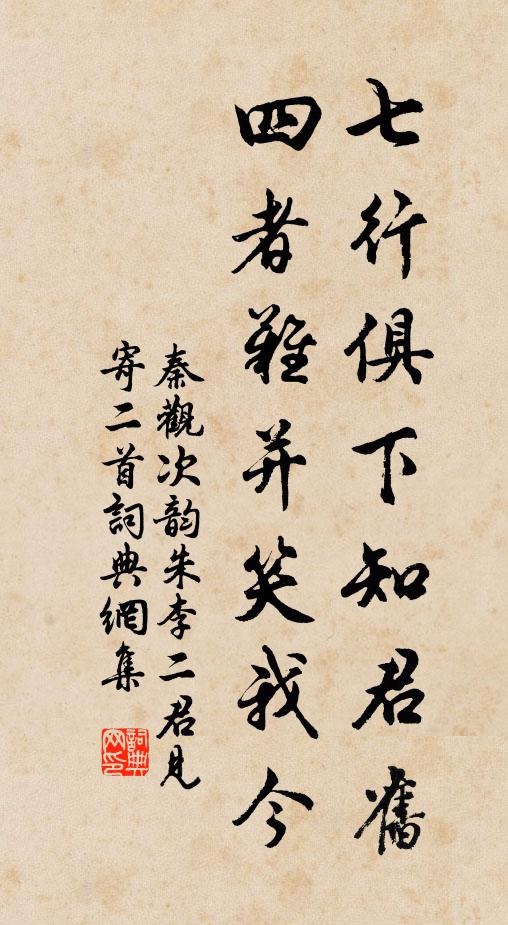 七行俱下知君舊
四者難并笑我今
秦觀次韵朱李二君見
寄二首詞典網集
詞典網印